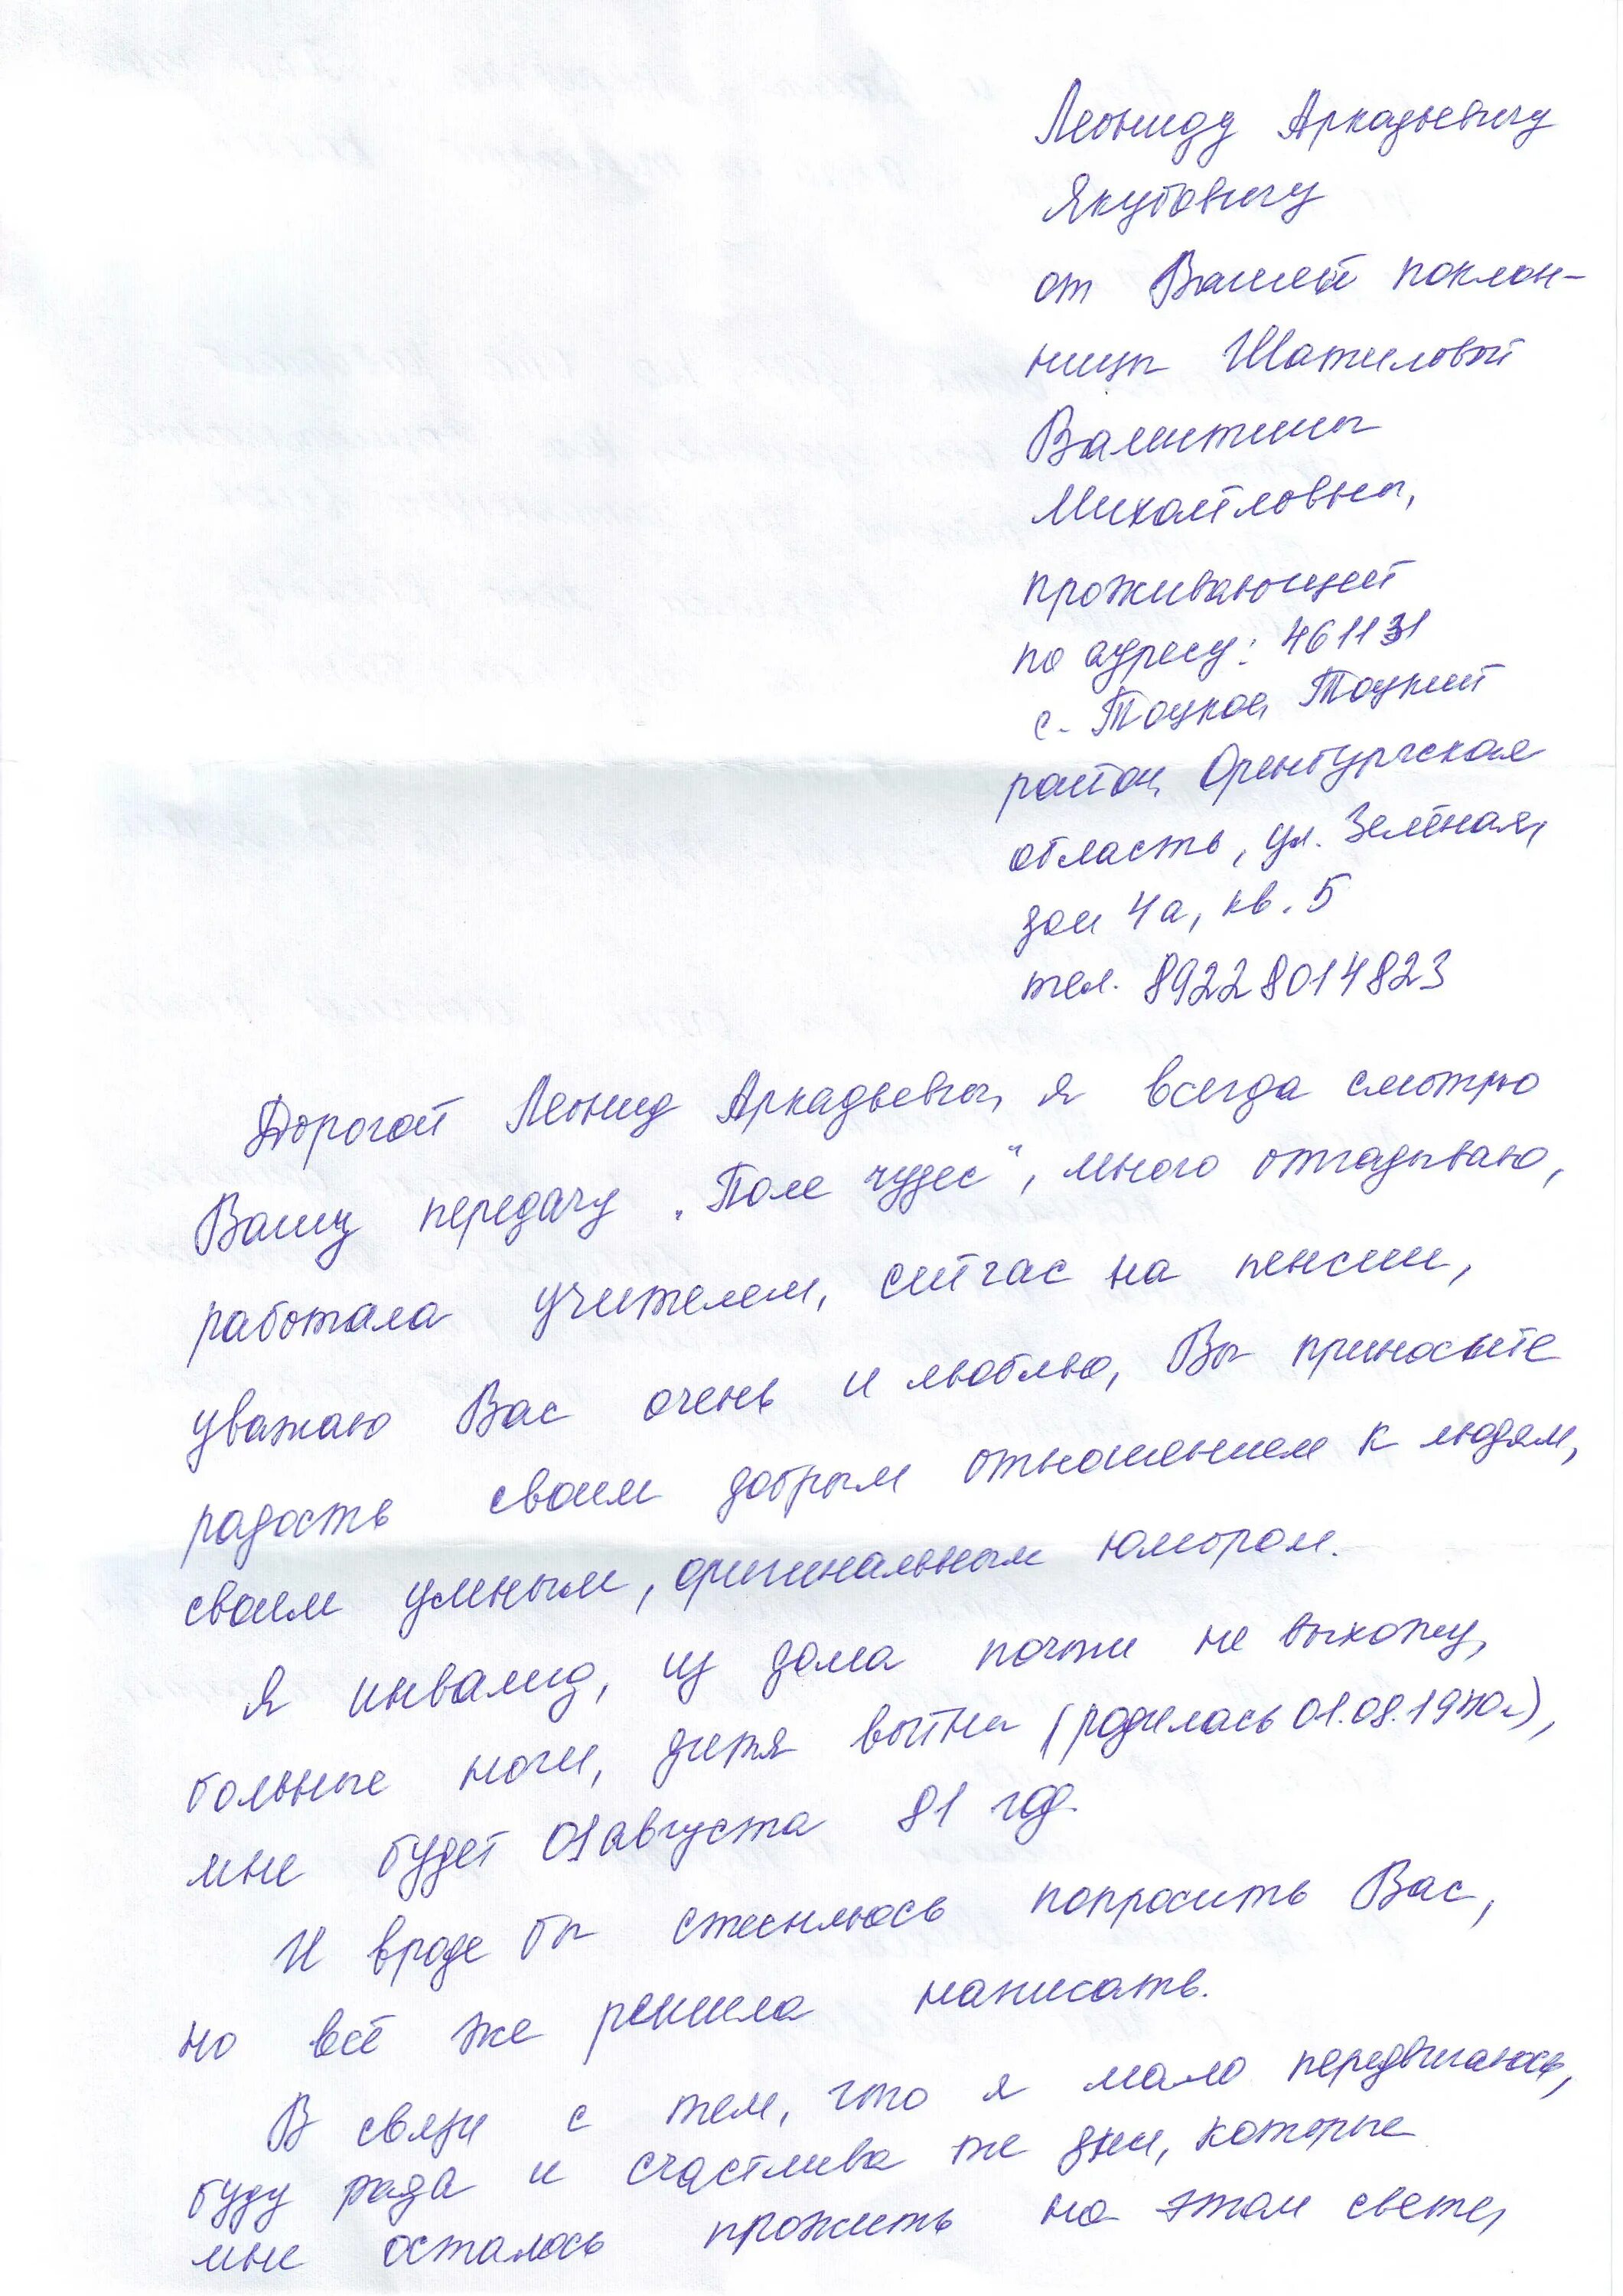 Леониду Аркадьевичу
Якубовичу
от Вашей поклон-
ницы Шатиловой
Валентины
Михайловны,
проживающей
по адресу: 461131
с. Тоцкое, Тоцкий
район, Оренбургская
область, ул. Зелёная,
дом 4а, кв. 5
тел. 89228014823
Дорогой Леонид Аркадьевич, я всегда смотрю
Вашу передачу „Поле чудес“, много отгадываю,
работала учителем, сейчас на пенсии,
уважаю Вас очень и люблю, Вы приносите
радость своим добрым отношением к людям,
своим умным, оригинальным юмором.
Я инвалид, из дома почти не выхожу,
больные ноги, дитя войны (родилась 01.08.1940г),
мне будет 01 августа 81 год.
И вроде бы стесняюсь попросить Вас,
но всё же решила написать.
В связи с тем, что я мало передвигаюсь,
буду рада и счастлива те дни, которые
мне осталось прожить на этом свете,